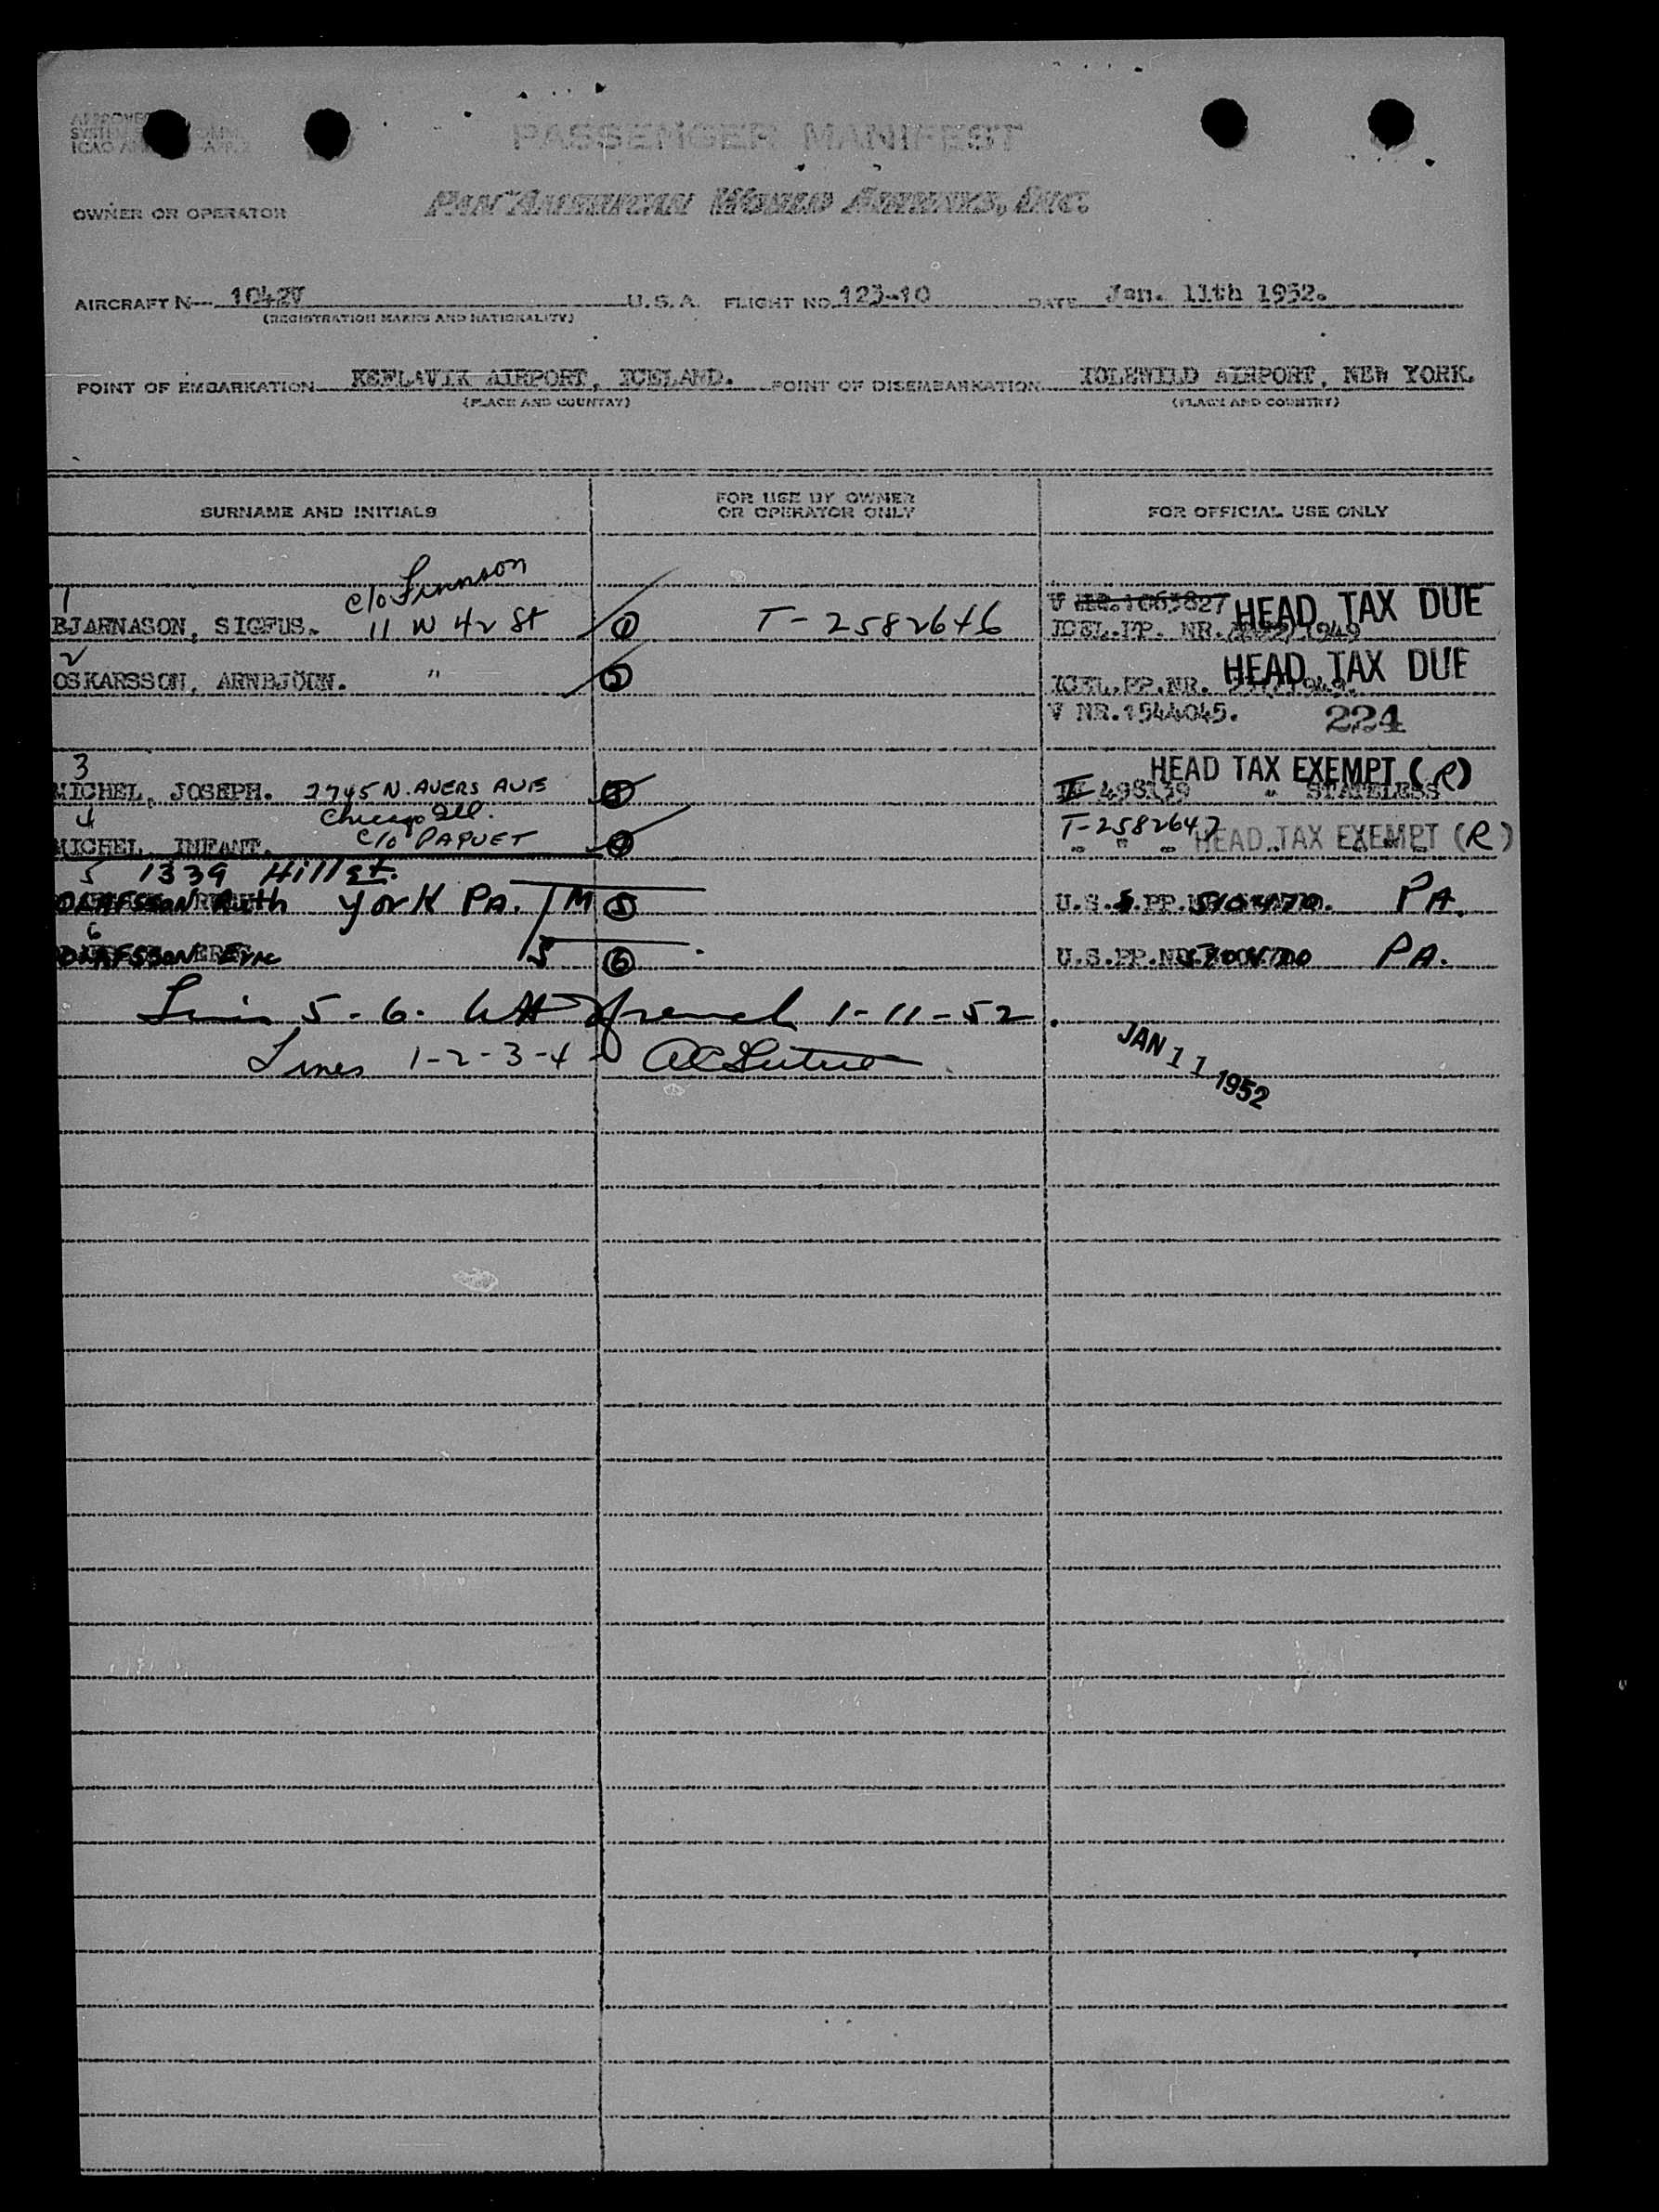 APPROVED
SYSTEM
ICAO
PASSENGER MANIFEST
OWNER OR OPERATOR PAN AMERICAN WORLD AIRWAYS, INC.
AIRCRAFT N— 1042V U.S.A. FLIGHT NO. 123-10 DATE Jan. 11th 1952.
(REGISTRATION MARKS AND NATIONALITY)
POINT OF EMBARKATION KEFLAVIK AIRPORT, ICELAND. POINT OF DISEMBARKATION IDLEWILD AIRPORT, NEW YORK.
(PLACE AND COUNTRY) (PLACE AND COUNTRY)
SURNAME AND INITIALS FOR USE BY OWNER OR OPERATOR ONLY FOR OFFICIAL USE ONLY
c/o Finnson
1 V NR. 1063827 HEAD TAX DUE
BJARNASON, SIGFUS. 11 W 42 St 1 T-2582646 ICEL.PP. NR. 1949
2 HEAD TAX DUE
OSKARSSON, ARNBJÖRN. " 2 ICEL.PP.NR.
V NR.1544045. 224
3 HEAD TAX EXEMPT (R)
MICHEL, JOSEPH. 2745 N. AVERS AVE 3 498139 " STATELESS
4 Chicago Ill. T-2582647
MICHEL, INFANT. c/o PAQUET 4 " " " HEAD TAX EXEMPT (R)
5 1339 Hill St.
OLAFSSON Ruth York PA. M 5 U.S.PP. PA.
6
OLAFSSON Eric S 6 U.S.PP.NR. PA.
5-6. 1-11-52
Lines 1-2-3-4-
JAN 11 1952